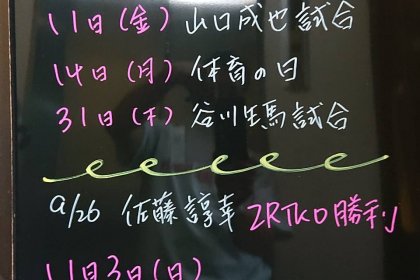 11日(金) 山口成也試合
14日(月) 体育の日
31日(木) 谷川生馬試合
9/26 佐藤諄幸 2RTKO勝利
11月3日(日)